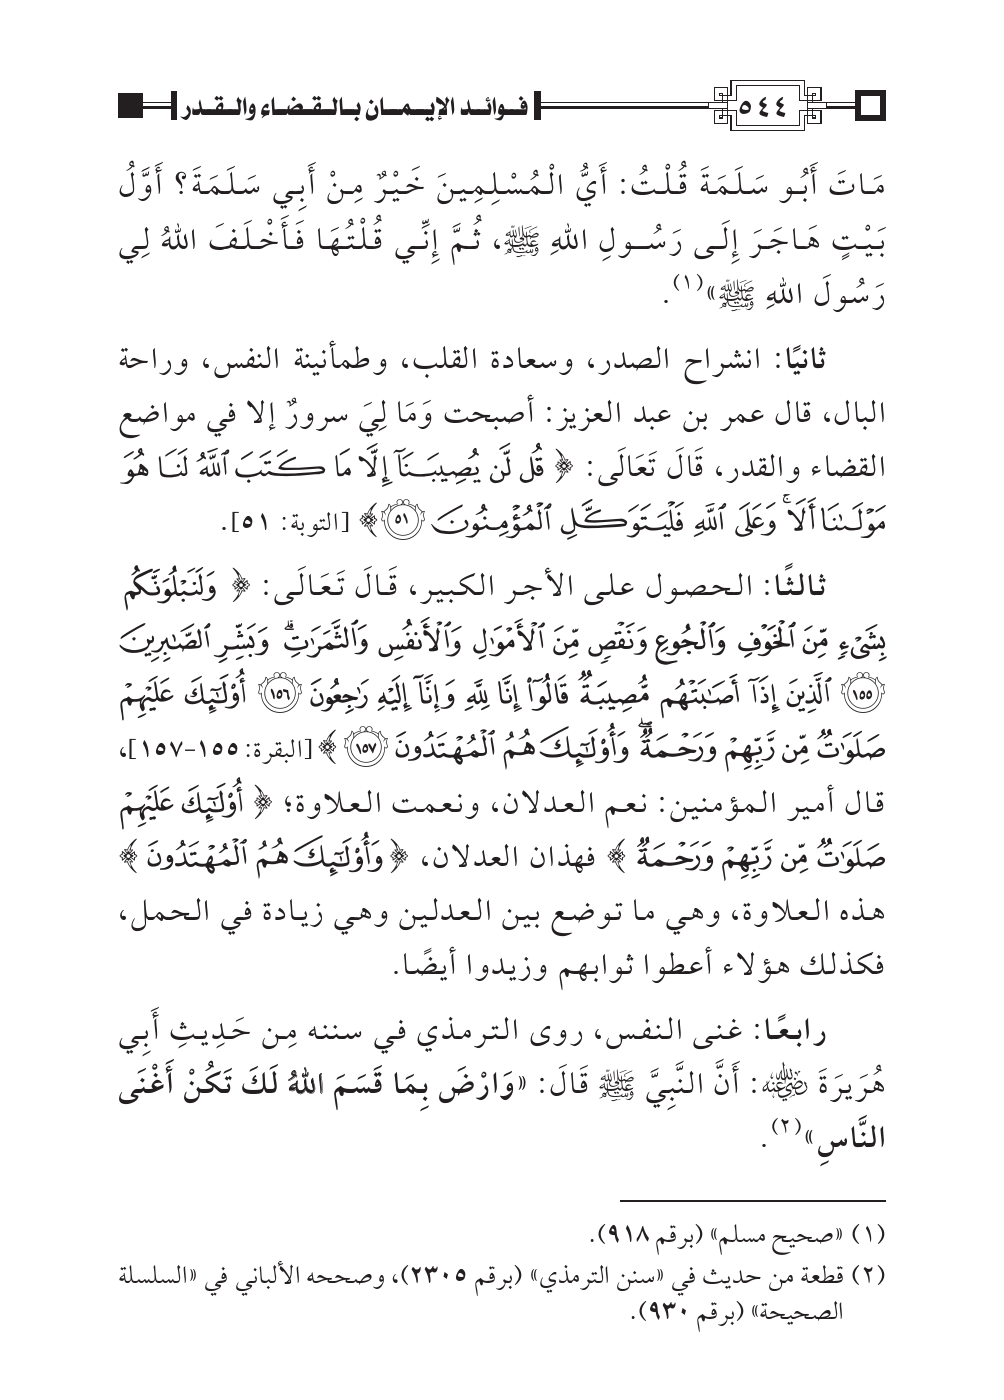 ٥٤٤ فوائد الإيمان بالقضاء والقدر
مَاتَ أَبُو سَلَمَةَ قُلْتُ: أَيُّ الْمُسْلِمِينَ خَيْرٌ مِنْ أَبِي سَلَمَةَ؟ أَوَّلُ
بَيْتٍ هَاجَرَ إِلَى رَسُولِ اللهِ ﷺ، ثُمَّ إِنِّي قُلْتُهَا فَأَخْلَفَ اللهُ لِي
رَسُولَ اللهِ ﷺ»(١).
ثانيًا: انشراح الصدر، وسعادة القلب، وطمأنينة النفس، وراحة
البال، قال عمر بن عبد العزيز: أصبحت وَمَا لِيَ سرورٌ إلا في مواضع
القضاء والقدر، قَالَ تَعَالَى: ﴿ قُل لَّن يُصِيبَنَآ إِلَّا مَا كَتَبَ ٱللَّهُ لَنَا هُوَ
مَوْلَىٰنَا ۚ وَعَلَى ٱللَّهِ فَلْيَتَوَكَّلِ ٱلْمُؤْمِنُونَ ٥١ ﴾ [التوبة: ٥١].
ثالثًا: الحصول على الأجر الكبير، قَالَ تَعَالَى: ﴿ وَلَنَبْلُوَنَّكُم
بِشَىْءٍ مِّنَ ٱلْخَوْفِ وَٱلْجُوعِ وَنَقْصٍ مِّنَ ٱلْأَمْوَٰلِ وَٱلْأَنفُسِ وَٱلثَّمَرَٰتِ ۗ وَبَشِّرِ ٱلصَّٰبِرِينَ
١٥٥ ٱلَّذِينَ إِذَآ أَصَٰبَتْهُم مُّصِيبَةٌ قَالُوٓا۟ إِنَّا لِلَّهِ وَإِنَّآ إِلَيْهِ رَٰجِعُونَ ١٥٦ أُو۟لَٰٓئِكَ عَلَيْهِمْ
صَلَوَٰتٌ مِّن رَّبِّهِمْ وَرَحْمَةٌ ۖ وَأُو۟لَٰٓئِكَ هُمُ ٱلْمُهْتَدُونَ ١٥٧ ﴾ [البقرة: ١٥٥-١٥٧]،
قال أمير المؤمنين: نعم العدلان، ونعمت العلاوة؛ ﴿ أُو۟لَٰٓئِكَ عَلَيْهِمْ
صَلَوَٰتٌ مِّن رَّبِّهِمْ وَرَحْمَةٌ ﴾ فهذان العدلان، ﴿ وَأُو۟لَٰٓئِكَ هُمُ ٱلْمُهْتَدُونَ ﴾
هذه العلاوة، وهي ما توضع بين العدلين وهي زيادة في الحمل،
فكذلك هؤلاء أعطوا ثوابهم وزيدوا أيضًا.
رابعًا: غنى النفس، روى الترمذي في سننه مِن حَدِيثِ أَبِي
هُرَيرَةَ رضي الله عنه: أَنَّ النَّبِيَّ ﷺ قَالَ: «وَارْضَ بِمَا قَسَمَ اللهُ لَكَ تَكُنْ أَغْنَى
النَّاسِ»(٢).
(١) «صحيح مسلم» (برقم ٩١٨).
(٢) قطعة من حديث في «سنن الترمذي» (برقم ٢٣٠٥)، وصححه الألباني في «السلسلة
الصحيحة» (برقم ٩٣٠).